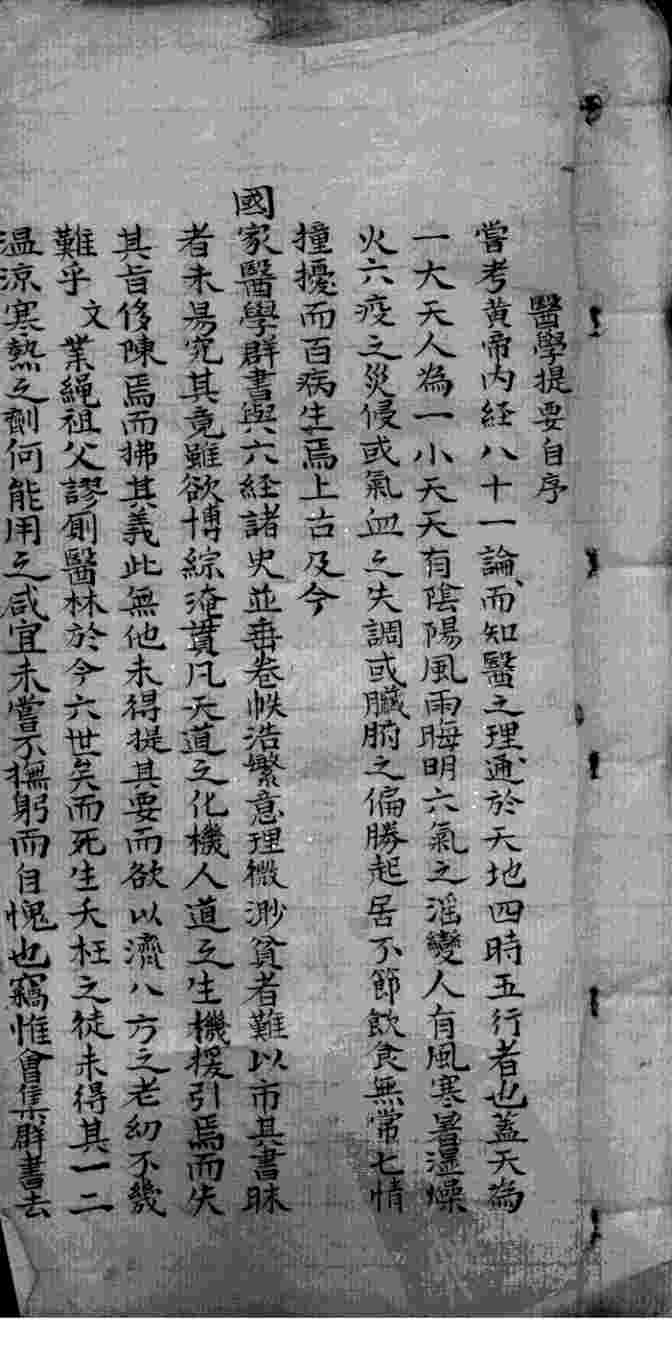 醫學提要自序
嘗考黄帝内経八十一論而知醫之理通於天地四時五行者也蓋天為
一大天人為一小天天有陰陽風雨晦明六氣之淫變人有風寒暑湿燥
火六疫之災侵或氣血之失調或臟腑之偏勝起居不節飲食無常七情
撞擾而百病生焉上古及今
國家醫學群書與六経諸史並垂卷帙浩繁意理微渺貧者難以市其書昧
者未易究其竟雖欲博綜淹貫凡天道之化機人道之生機援引焉而失
其旨侈陳焉而拂其義此無他未得提其要而欲以濟八方之老幼不幾
難乎文業繩祖父謬厠醫林於今六世矣而死生夭枉之徒未得其一二
温凉寒熱之劑何能用之咸宜未嘗不撫躬而自愧也竊惟會集群書去